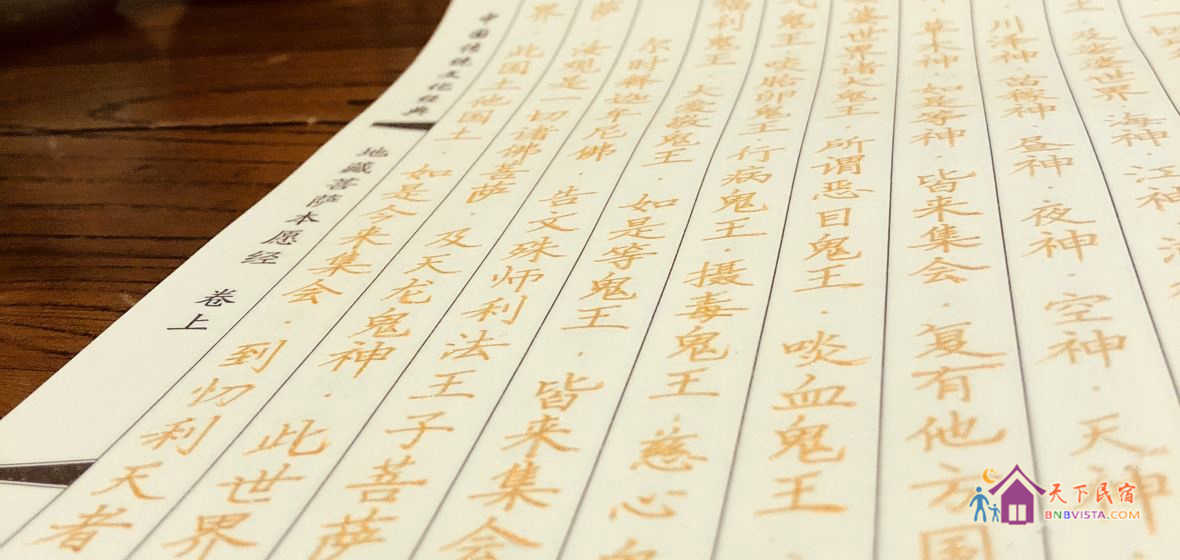 土·及娑婆世界·海神·江神·
川泽神·苗稼神·昼神·夜神·空神·天神
草木神·如是等神·皆来集会·复有他方国
婆世界诸大鬼王·所谓恶目鬼王·啖血鬼王
气鬼王·啖胎卵鬼王·行病鬼王·摄毒鬼王·慈心
福利鬼王·大爱敬鬼王·如是等鬼王·皆来集会
尔时释迦牟尼佛·告文殊师利法王子菩萨
萨·汝观是一切诸佛菩萨·及天龙鬼神·此世界
界·此国土他国土·如是今来集会·到忉利天者
中国传统文化经典 地藏菩萨本愿经 卷上
天下民宿
BNBVISTA.COM